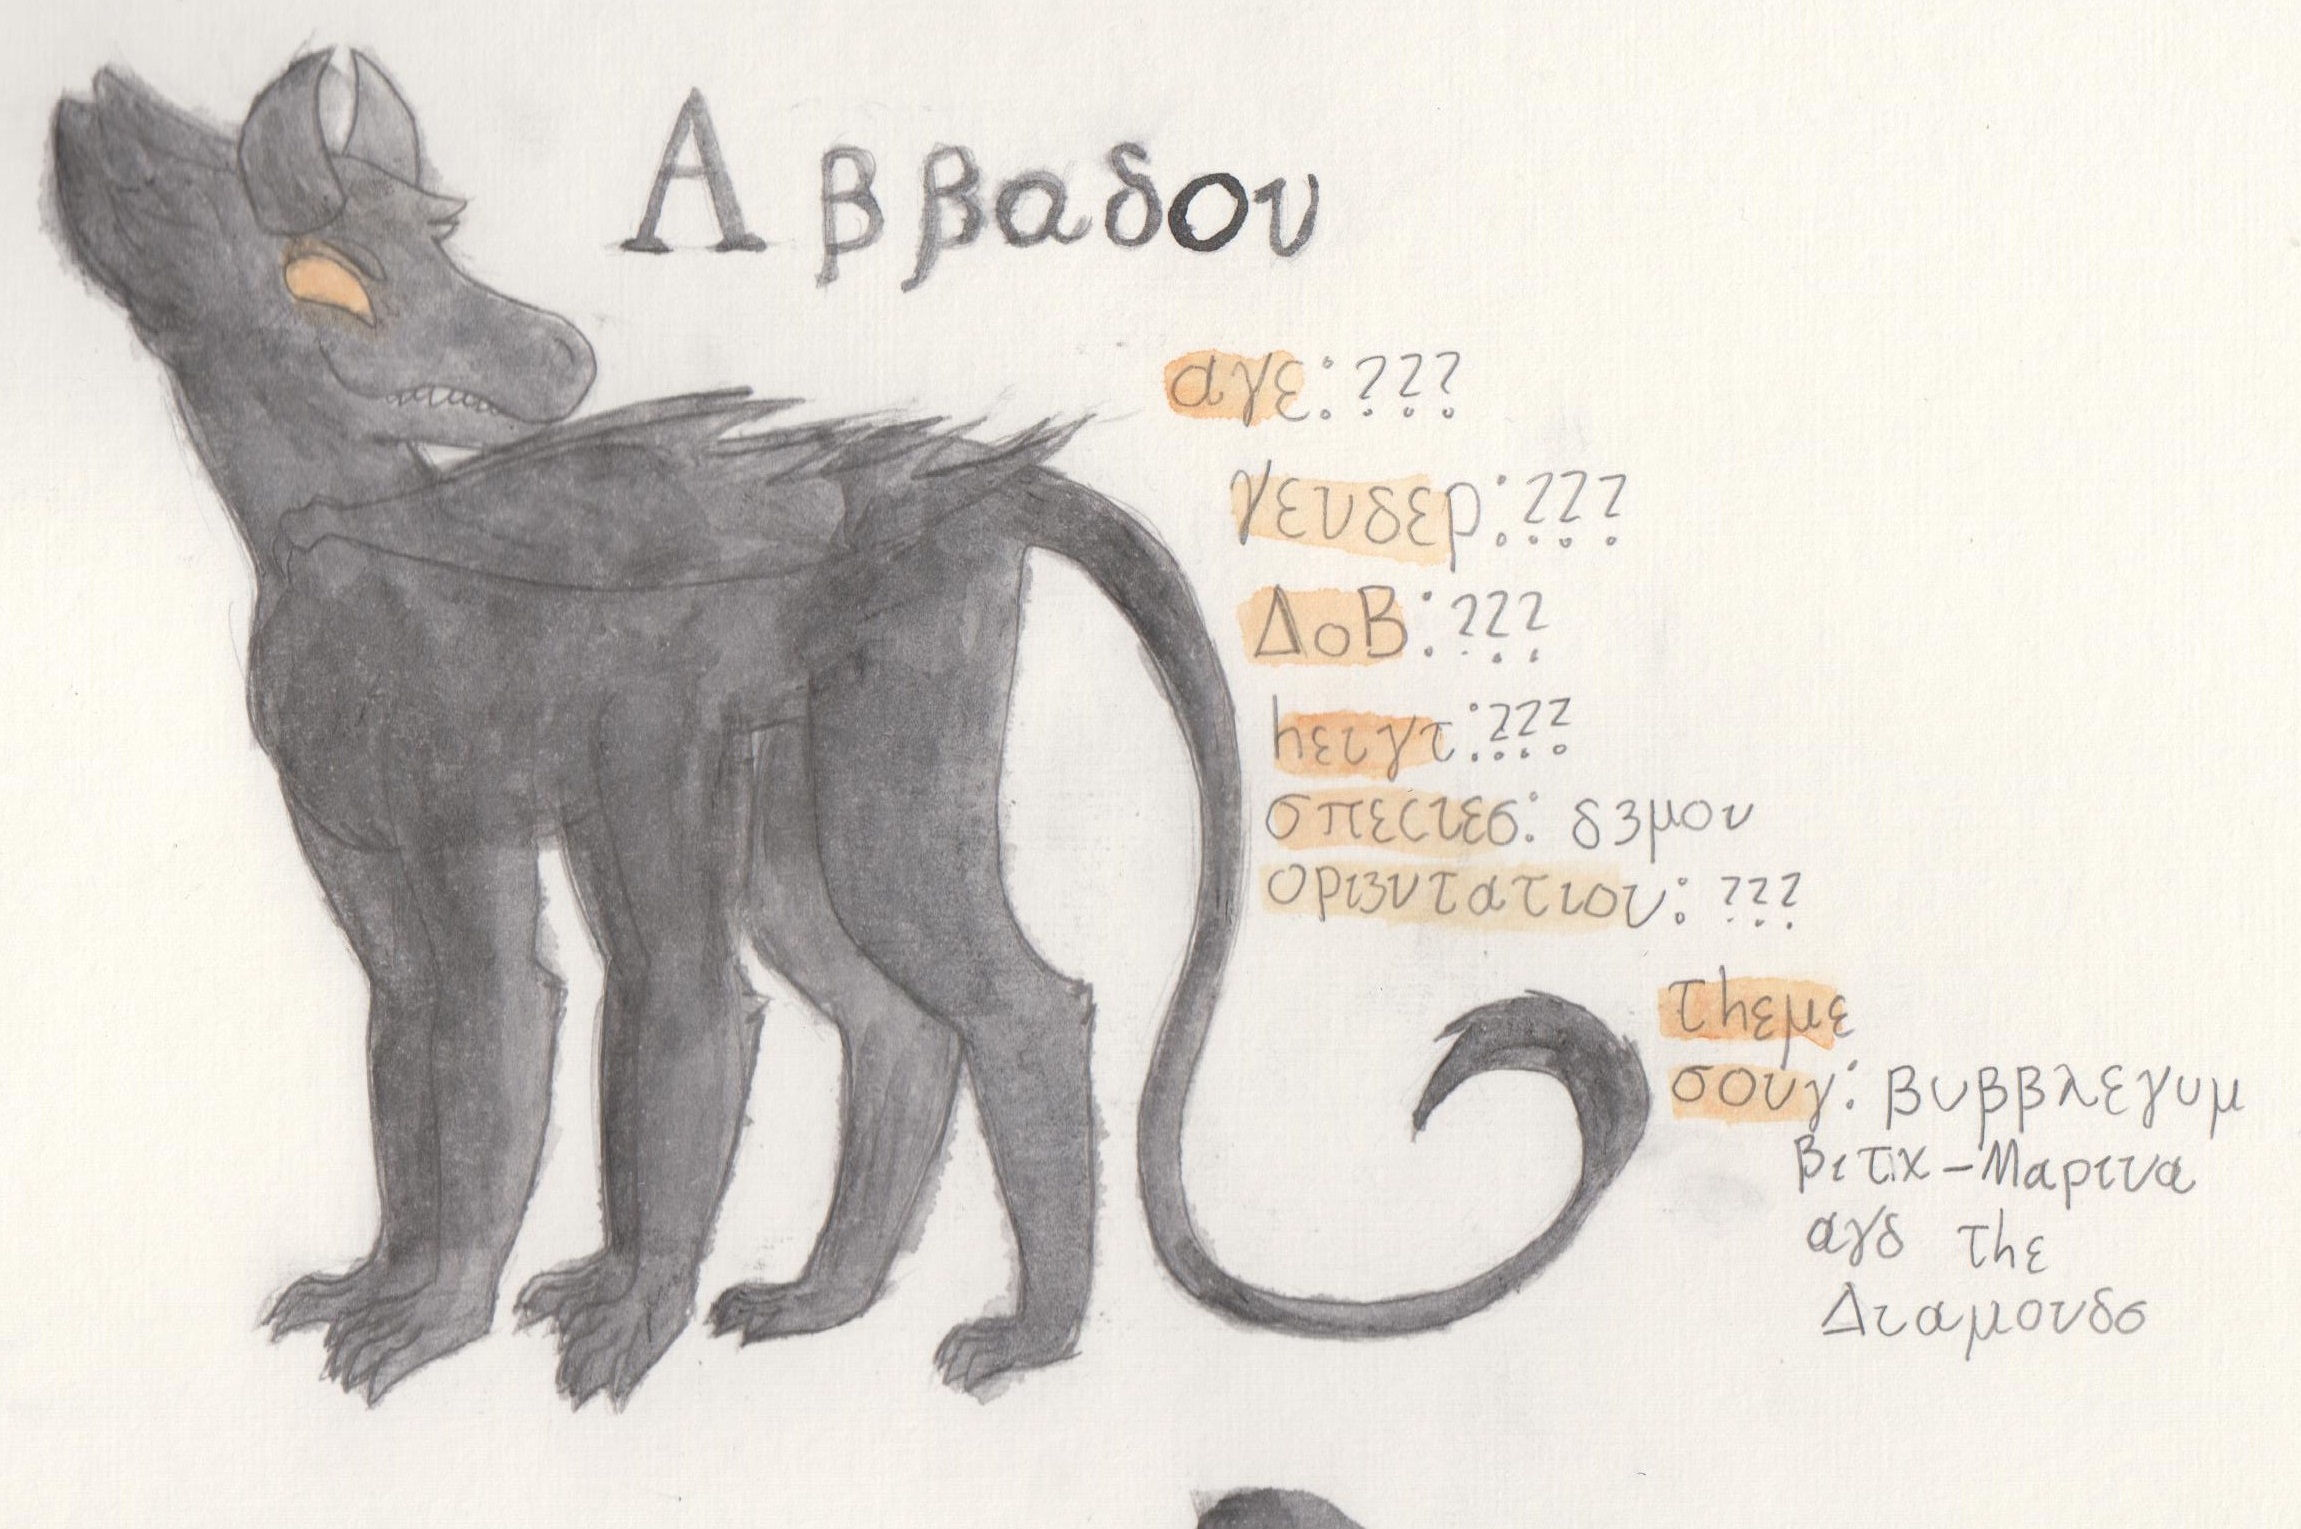 Αββαδον
αγε:???
γενδερ:???
ΔοΒ:???
hειγτ:???
σπεςιεσ: δ3μον
ορι3ντατιον: ???
τhεμε
σονγ: βυββλεγυμ
βιτχ-Μαρινα
αγδ τhε
Διαμονδσ